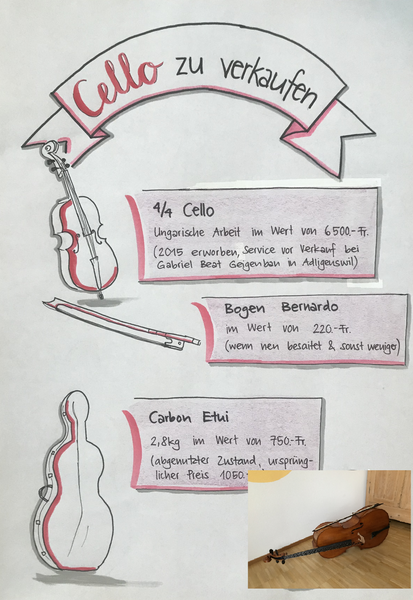 Cello zu verkaufen
4/4 Cello
Ungarische Arbeit im Wert von 6500.-Fr.
(2015 erworben, Service vor Verkauf bei
Gabriel Beat Geigenbau in Adligenswil)
Bogen Bernardo
im Wert von 220.-Fr.
(wenn neu besaitet & sonst weniger)
Carbon Etui
2,8kg im Wert von 750.-Fr.
(abgenutzter Zustand, ursprüng-
licher Preis 1050.-